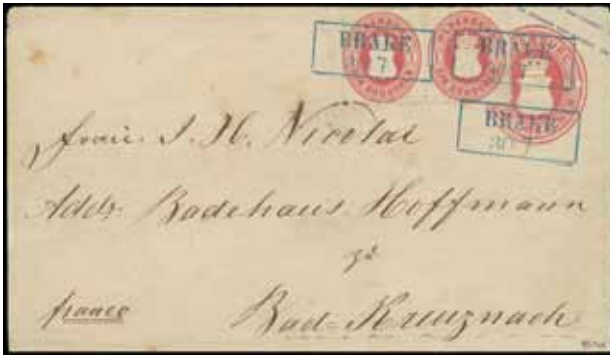 BRAKE
BRAKE
BRAKE
30 7
Frau J. H. Nicolai
Addr. Badehaus Hoffmann
zu
franco
Bad-Kreuznach